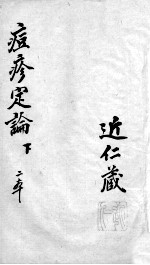 痘疹定論 下
二本
近仁藏